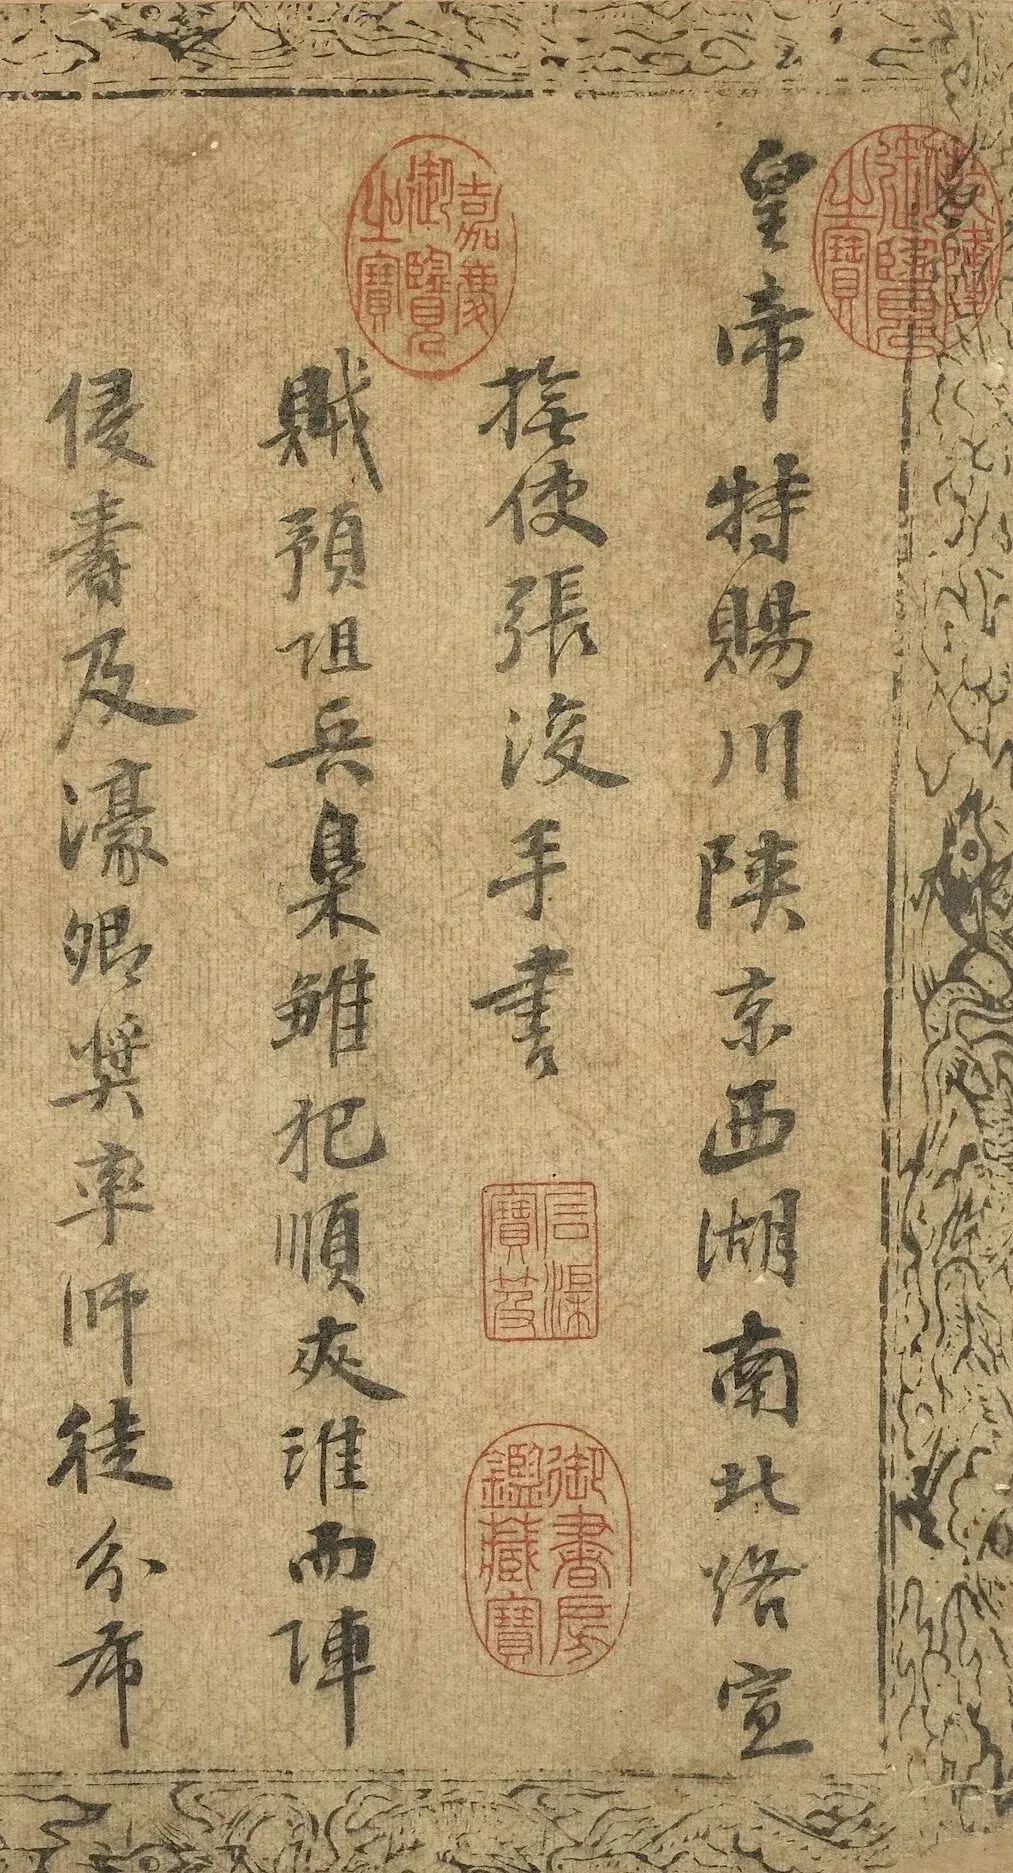 皇帝特賜川陝京西湖南北路宣
撫使張浚手書
賊預阻兵梟雛犯順夾淮而陣
侵壽及濠卿獎率師徒分布
乾隆御覽之寶
嘉慶御覽之寶
石渠寶笈
御書房鑑藏寶